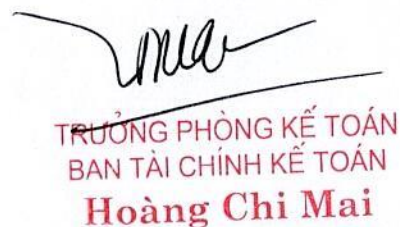 TRƯỞNG PHÒNG KẾ TOÁN
BAN TÀI CHÍNH KẾ TOÁN
Hoàng Chi Mai